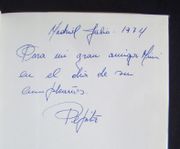 Madrid Julio - 1974
Para un gran amigo
en el día de su
cumpleaños
Pepita